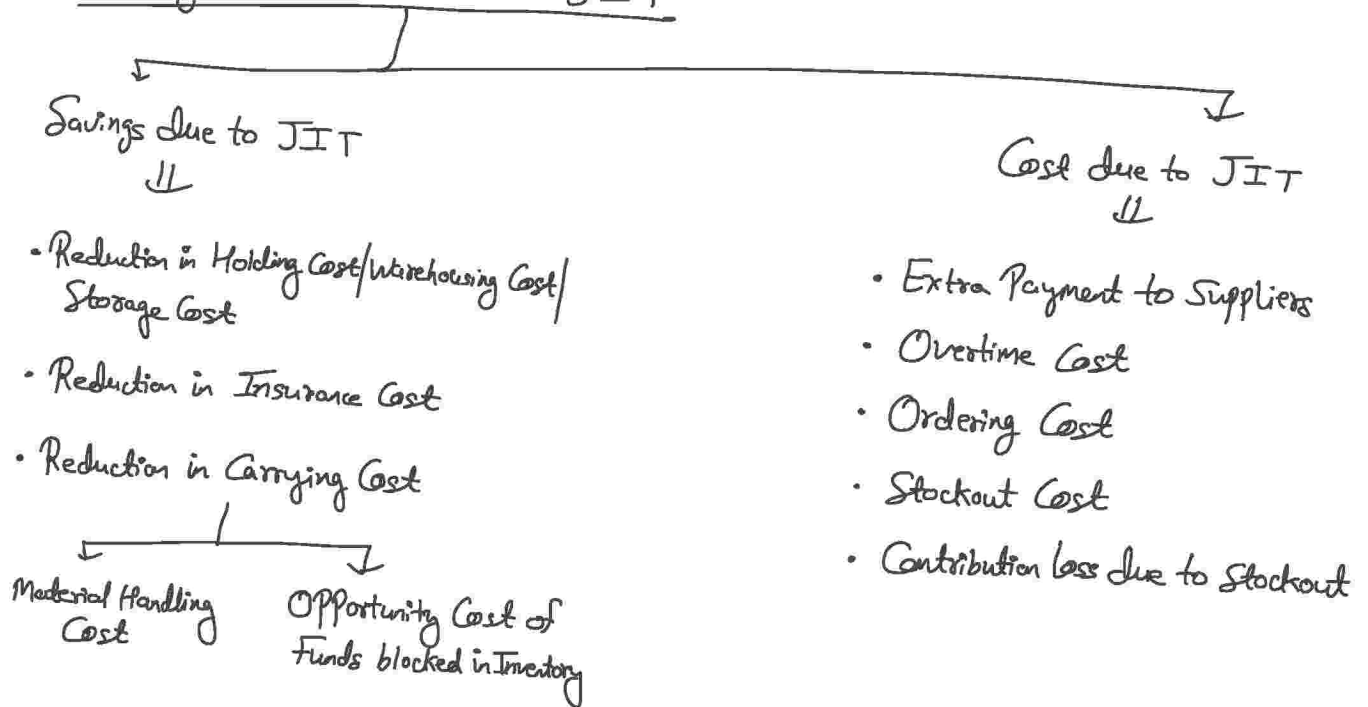 Savings due to JIT
• Reduction in Holding Cost/Warehousing Cost/
Storage Cost
• Reduction in Insurance Cost
• Reduction in Carrying Cost
Material Handling
Cost
Opportunity Cost of
Funds blocked in Inventory
Cost due to JIT
• Extra Payment to Suppliers
• Overtime Cost
• Ordering Cost
• Stockout Cost
• Contribution loss due to Stockout